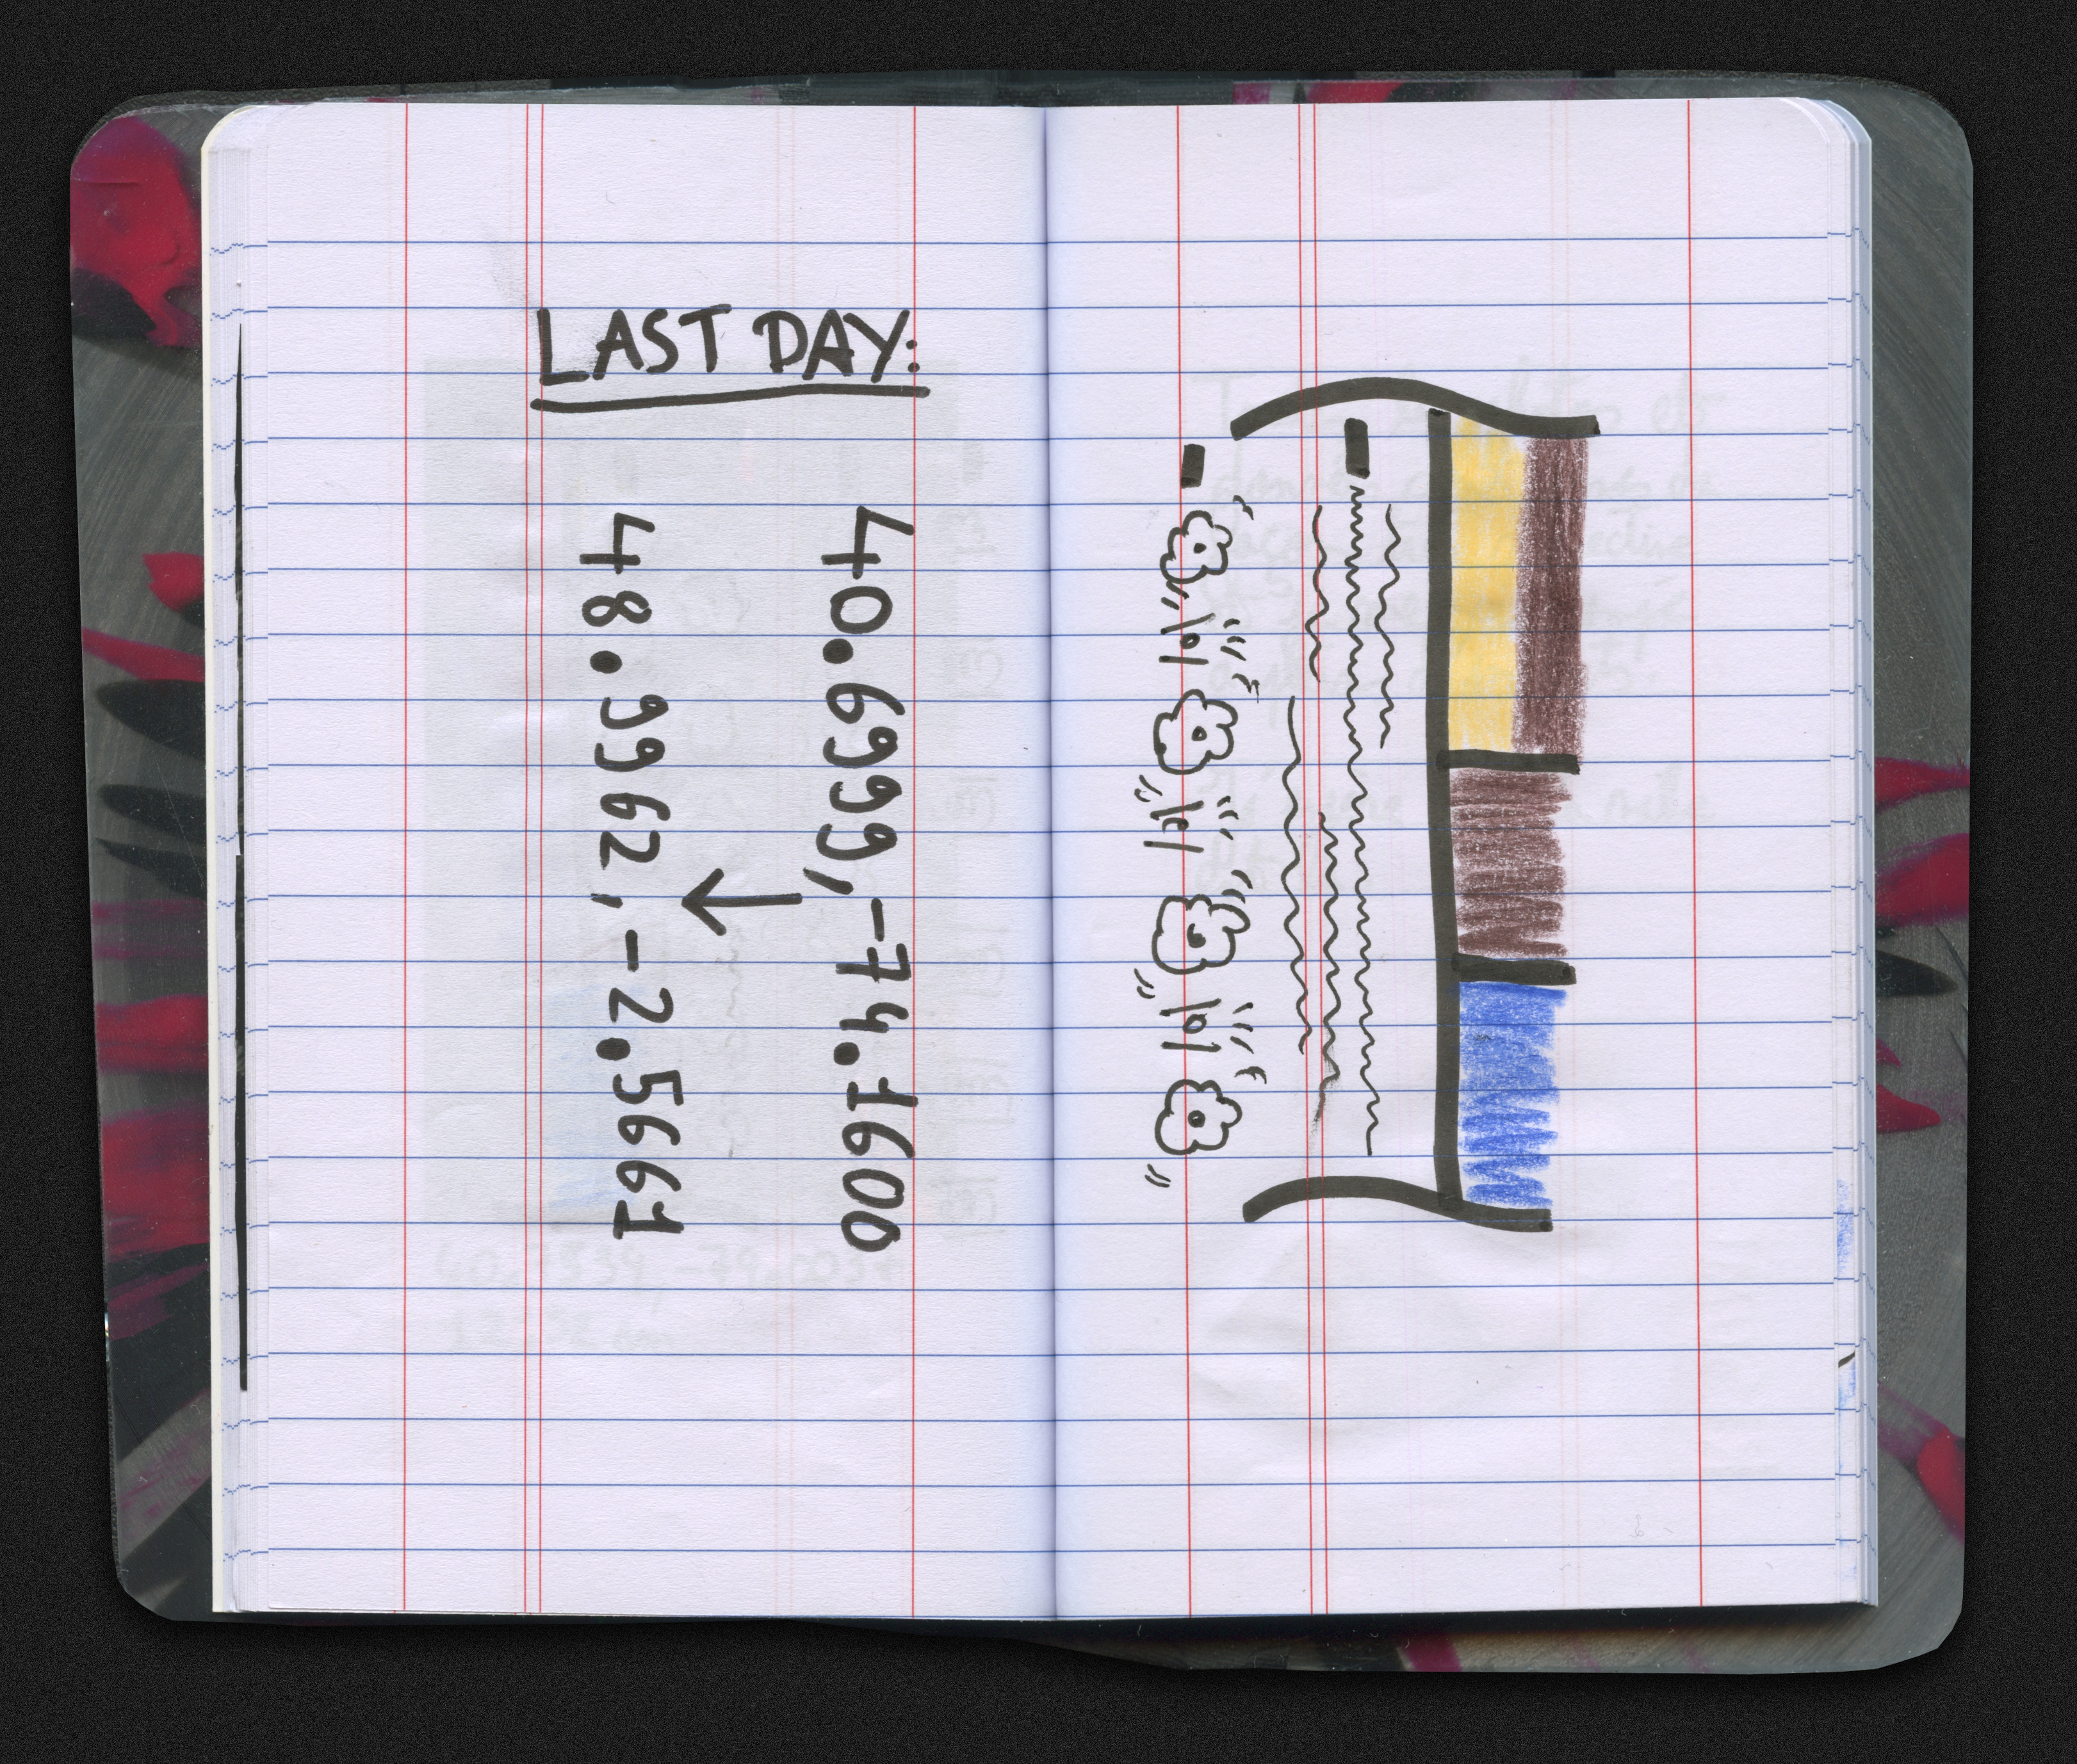 LAST DAY:
40.6999, -74.1600
↓
48.9962, -2.5661